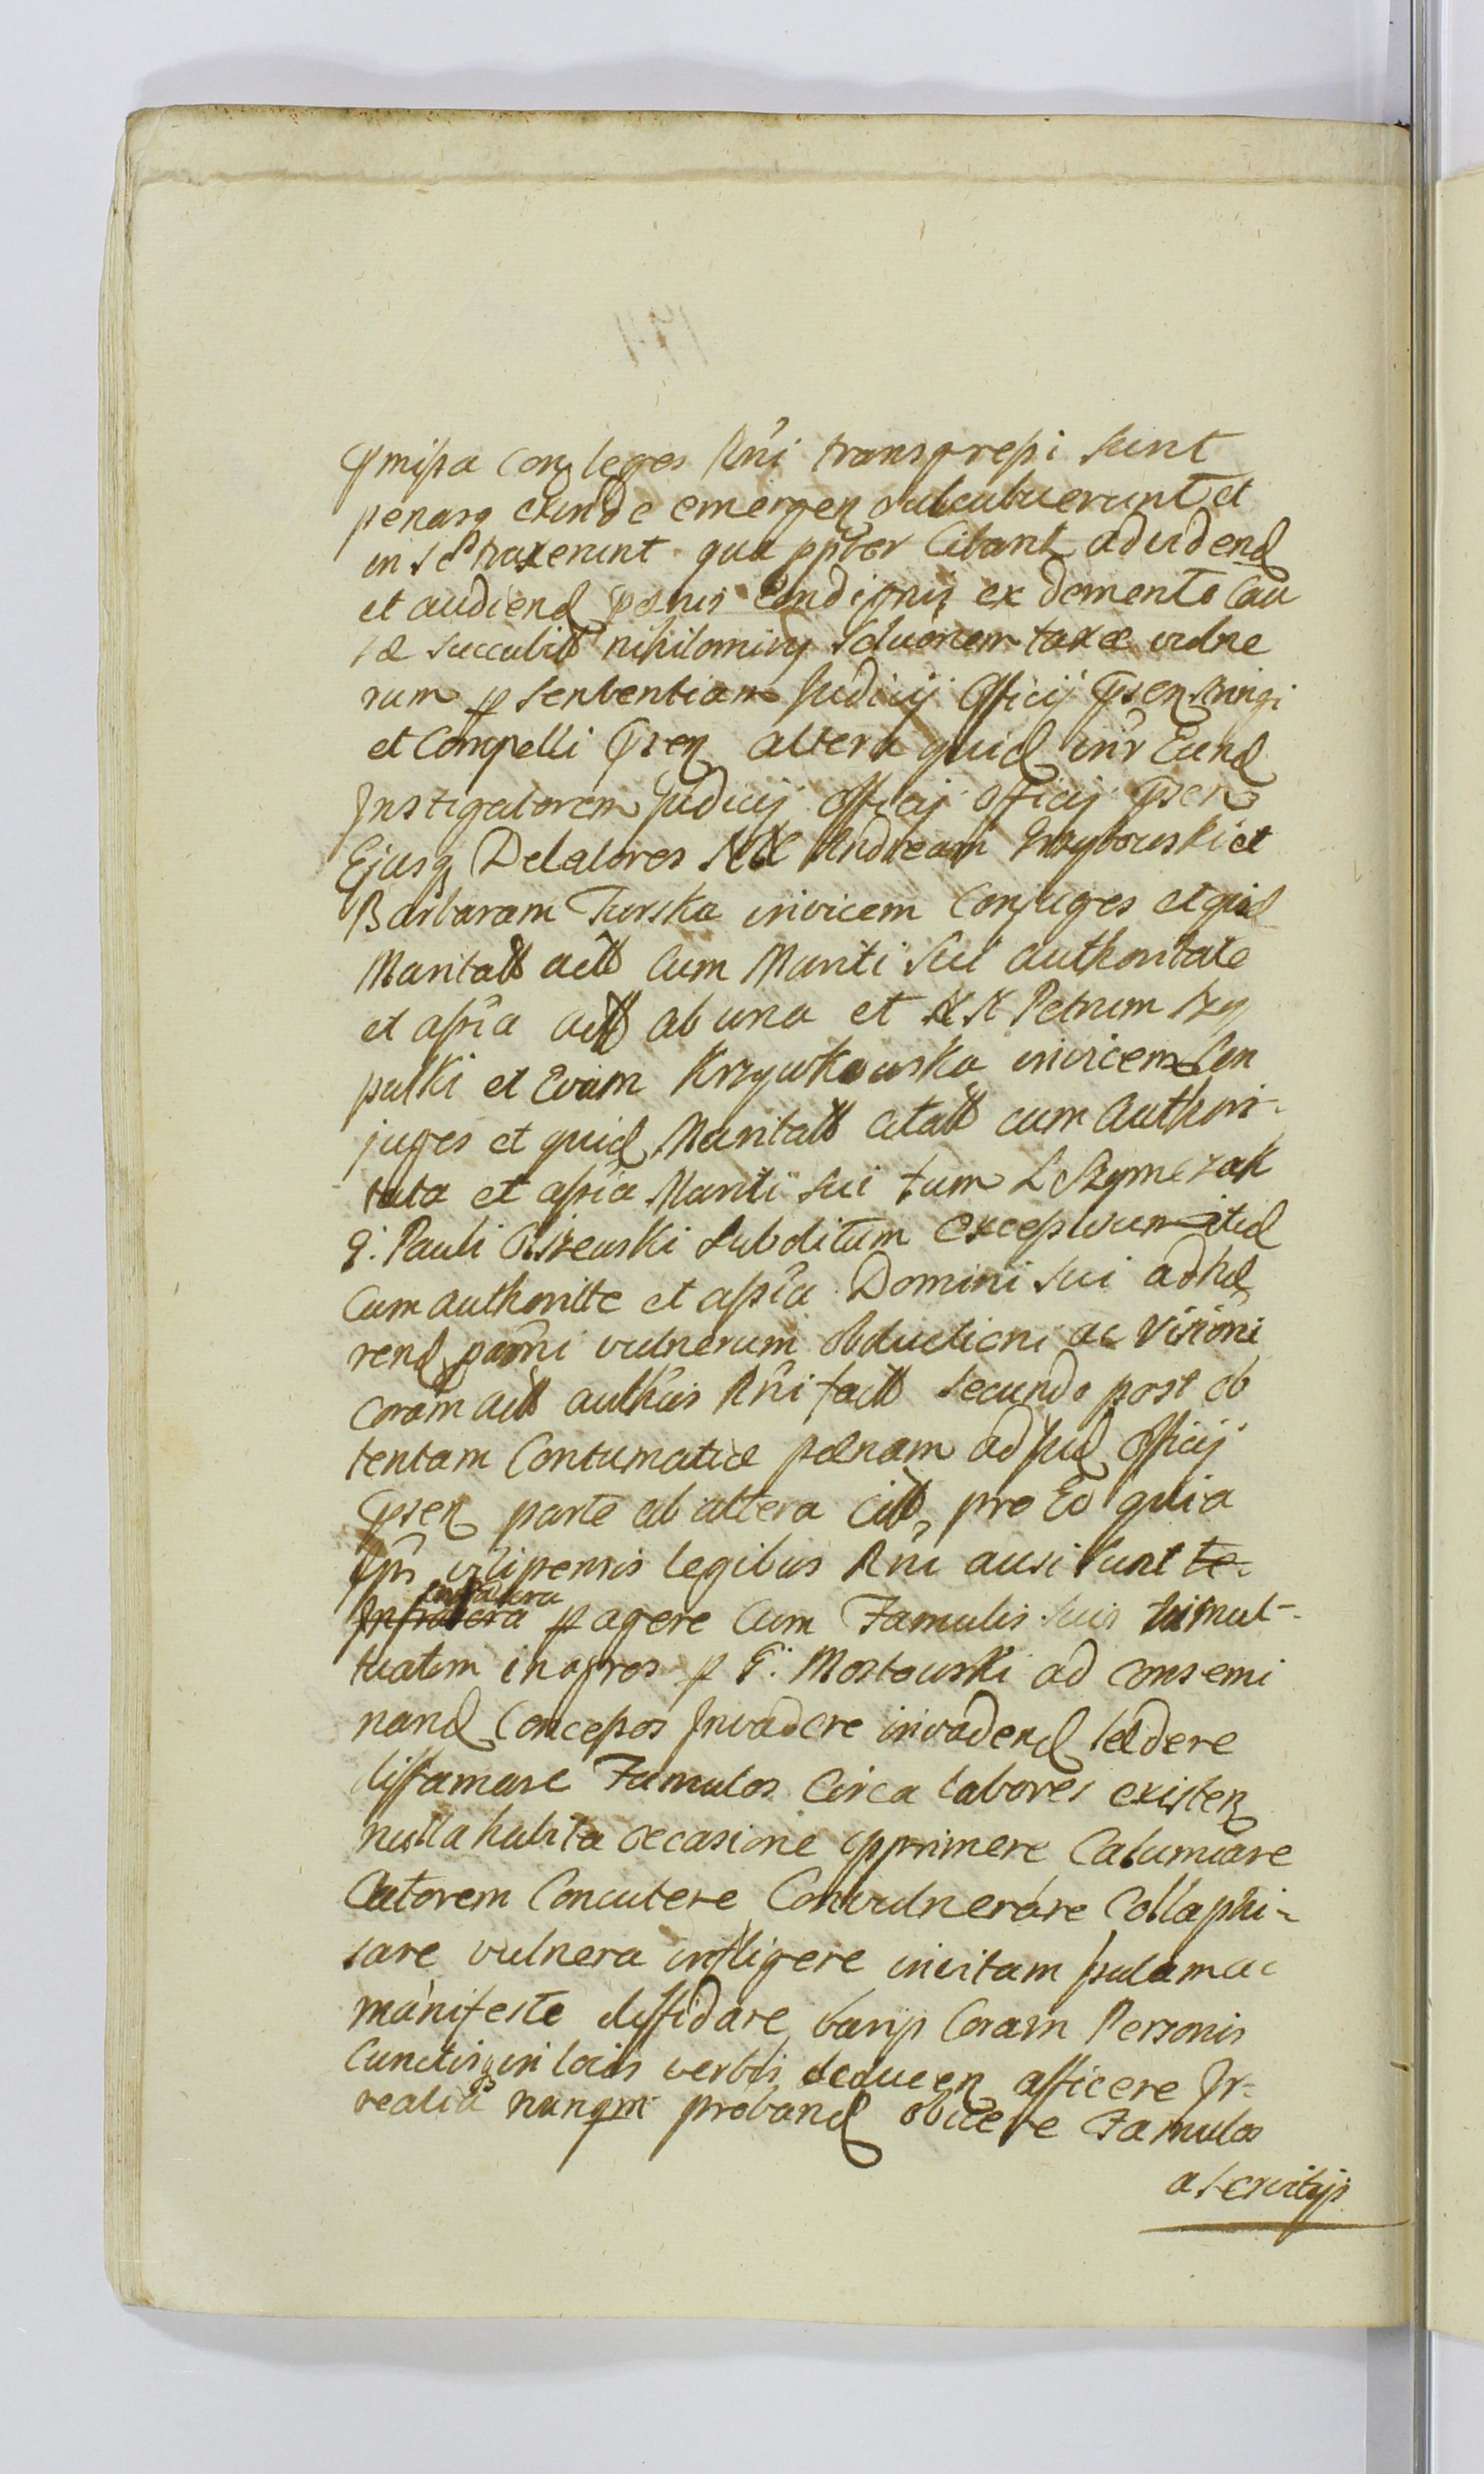 pmissa Con leges Rni transgressi sunt
penasq exinde emergen subcubuerunt et
in se traxerunt qua ppter Citant ad vidend
et audiend penis condignis ex demerito Cau
sæ succubitt nihilominq soluönem taxæ vulne
rum p sententiam Judicij Officij psen stringi
et Compelli psen altera quid intr Eund
Instigatorem Judicij Officij Officij psen
Ejusq Delatores NN Andream Grzybowski et
Barbaram Turska invicem Conjuges et quid
Maritatt actt cum Mariti sui authoritate
et assia actt ab una et NN Petrum Szy
pulki et Evam Krzywkowska invicem Con
juges et quid Maritatt citatt cum Authori-
tata et assia Mariti sui tum L Szymczak
G. Pauli Olszewski Subditum excepturum itid
Cum authoritte et assia Domini sui adhæ
rend parni vulnerum obductioni ac visioni
coram actt authcis Rni factt secundo post ob
tentam Contumatiæ pænam ad Jud Officij
psen parte ab altera Citt, pro Eo quia
Ipsi vilipensis legibus Rni ausi sunt te-
p agere Cum Famulis suis tumul-
tuatim in agros p G. Mostowski ad consemi
nand Concessos Invadere invadend lædere
diffamare Famulos Circa labores existen
nulla habita occasione opprimere Calumniare
Actorem Concutere Convulnerare Collaphi-
sare vulnera infligere in vitam palam ac
manifeste diffidare varijs Coram Personis
Cunctisq in locis verbis deducen afficere Ir-
realia nunqm proband obicere Famulos
a servitijs